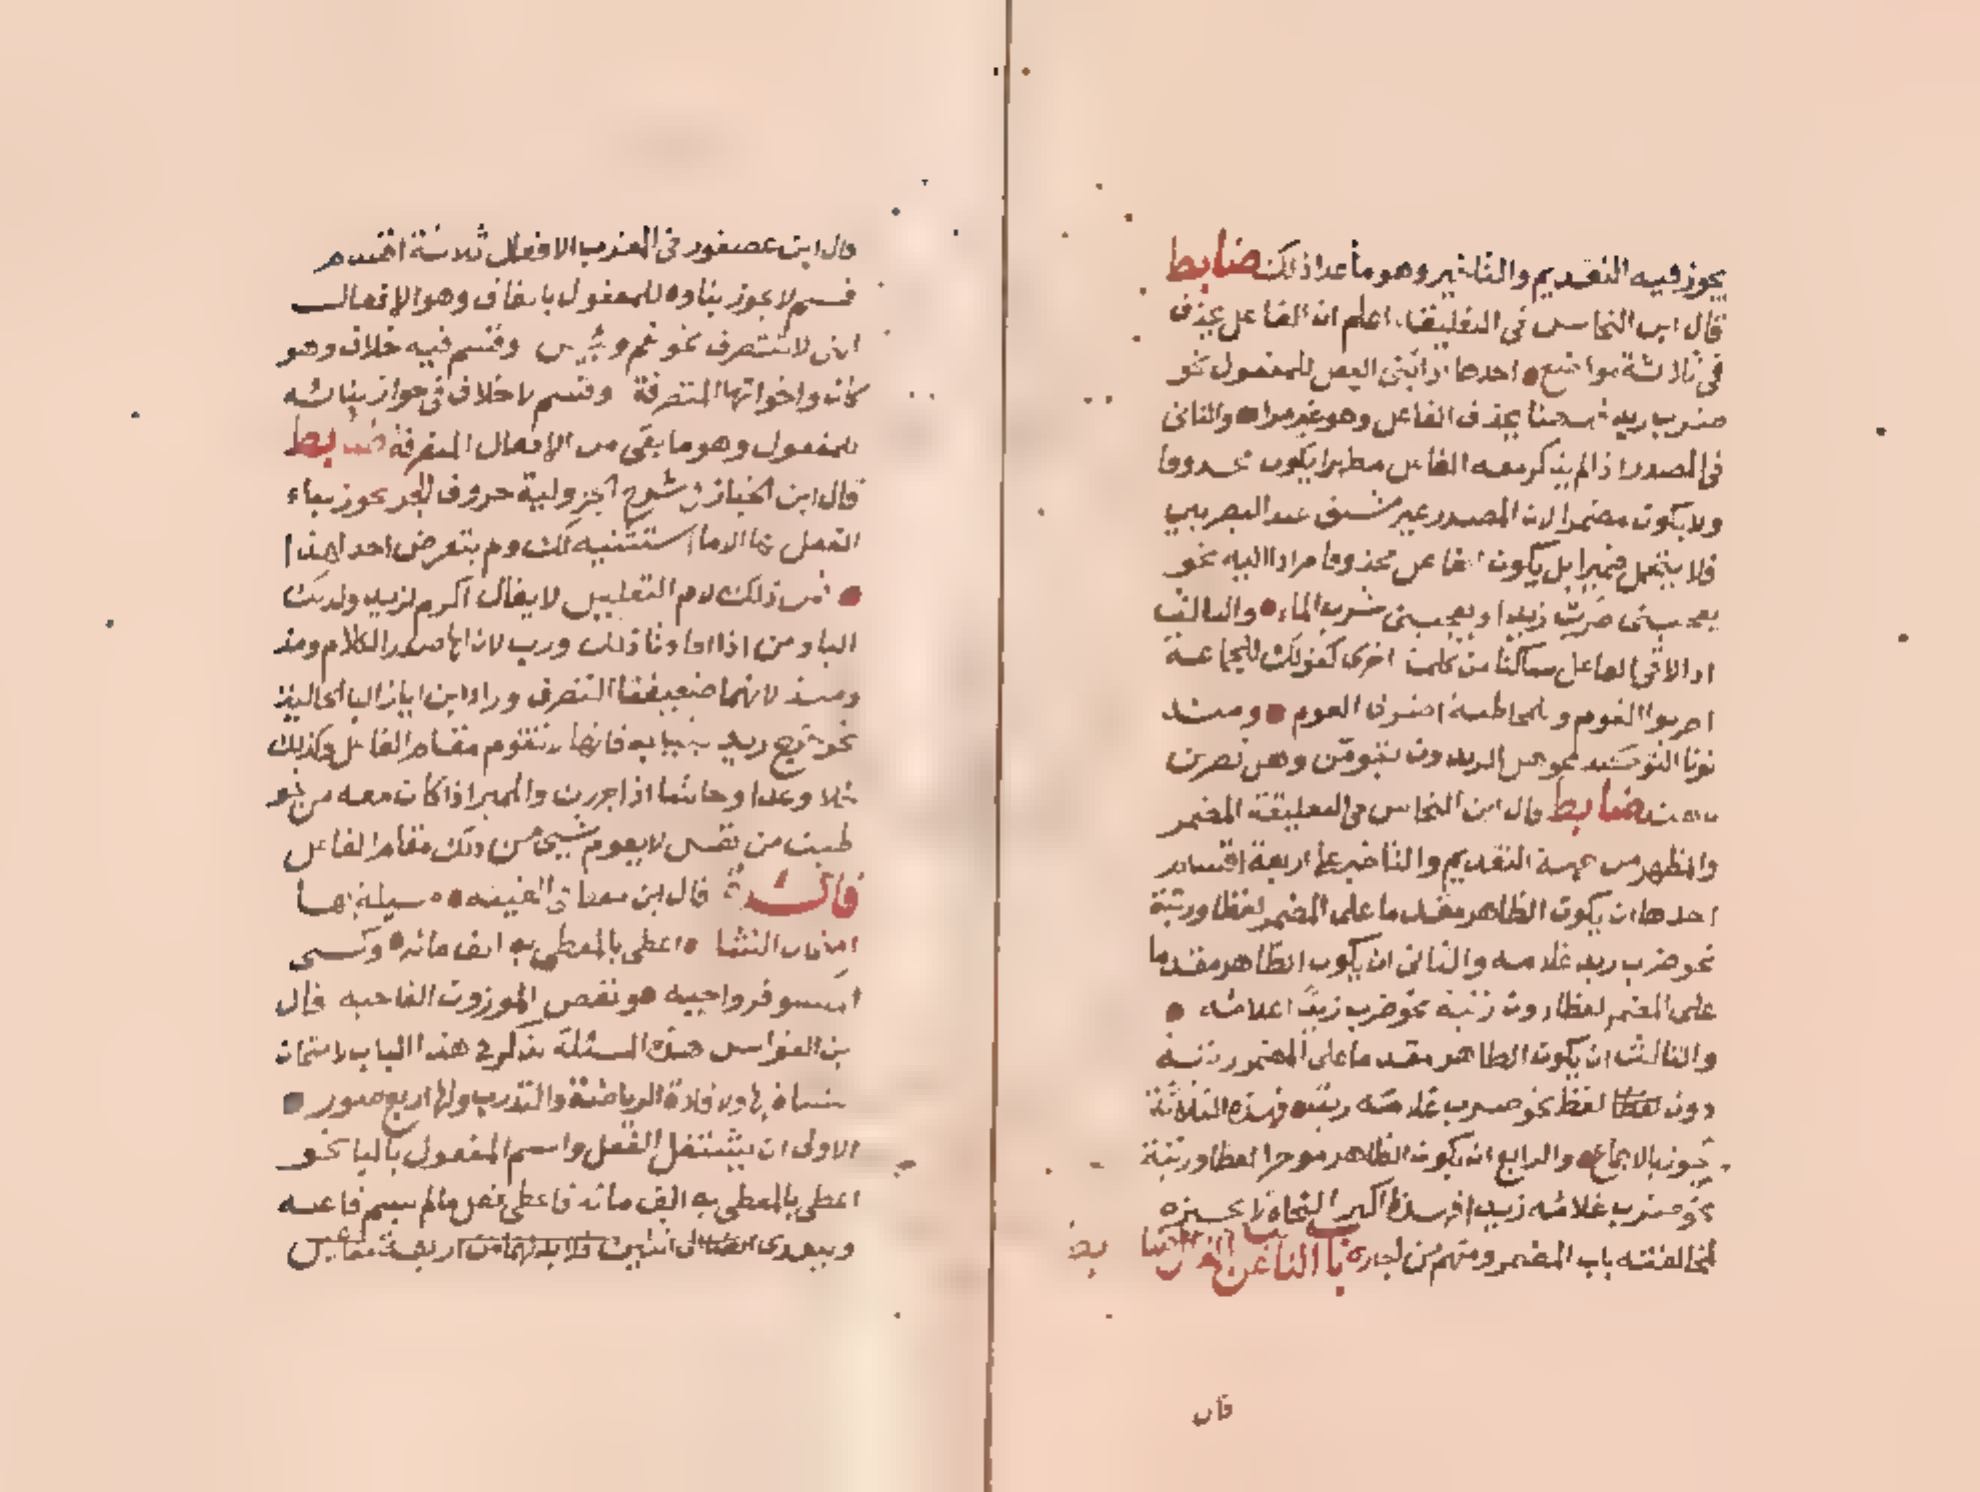 يجوز فيه التقديم والتاخير وهو ما عدا ذلك ضابط
قال ابن النحاس في التعليقا اعلم ان الفاعل يحذف
في ثلاثة مواضع احدها اذا بنى الفعل للمفعول نحو
ضرب زيد فهنا يحذف الفاعل وهو غير مراد والثاني
في المصدر اذا لم يذكر معه الفاعل مظهرا يكون محذوفا
ولا يكون مضمرا لان المصدر غير مشتق عند البصريين
فلا يتحمل ضميرا بل يكون الفاعل محذوفا مرادا اليه نحو
يعجبني ضرب زيدا ويعجبني شرب الماء والثالث
اذا لاقى الفاعل ساكنا من كلمة اخرى كقولك للجماعة
اضربوا القوم وللمخاطبة اضرب القوم ومنه
نونا التوكيد نحو هل الزيدون يقومن وهل تضربن
يا هند ضابط قال ابن النحاس في التعليقة المضمر
والمظهر من جهة التقديم والتاخير على اربعة اقسام
احدها ان يكون الظاهر مقدما على المضمر لفظا ورتبة
نحو ضرب زيد غلامه والثاني ان يكون الظاهر مقدما
على المضمر لفظا دون رتبة نحو ضرب زيدا غلامه
والثالث ان يكون الظاهر مقدما على المضمر رتبة
دون لفظا لفظ نحو ضرب غلامه زيد فهذه الثلاثة
تجوز بالاجماع والرابع ان يكون الظاهر موخرا لفظا ورتبة
نحو ضرب غلامه زيدا فهذا اكبر النحاة لا يجيزه
لمخالفته باب المضمر ومنهم من اجازه باب النائب عن الفاعل ضابط
قال
قال ابن عصفور في المقرب الافعال ثلاثة اقسام
قسم لا يجوز بناوه للمفعول باتفاق وهو الافعال
التي لا تتصرف نحو نعم وبئس وقسم فيه خلاف وهو
كان واخواتها المتصرفة وقسم لا خلاف في جواز بنائه
للمفعول وهو ما بقي من الافعال المتصرفة ضابط
قال ابن الخباز في شرح الجزولية حروف الجر يجوز بناء
الفعل لها الا ما استثنيه لك ولم يتعرض احد لهذا
فمن ذلك لام التعليل لا يقال اكرم لزيد وكذلك
الباء ومن اذا افادتا ذلك ورب لان لها صدر الكلام ومذ
ومنذ لانهما ضعيفتا التصرف وزاد ابن اياز البا الحالية
نحو خرج زيد بثيابه فانها لا تقوم مقام الفاعل وكذلك
خلا وعدا وحاشا اذا جررن والمميز اذا كان معه من نحو
طبت من نفس لا يقوم شيء من ذلك مقام الفاعل
فائدة قال ابن معطي في الفيته مسيلة بها
امتحان النشا اعطي بالمعطى به الف مائه وكسي
المكسو فروا جبه ونقص الموزون الفا حبه قال
ابن القواس هذه المسئلة تذكر في هذا الباب لامتحان
النشاة بها ولافادة الرياضة والتدرب ولها اربع صور
الاولى ان يشتغل الفعل واسم المفعول بالبا نحو
اعطى بالمعطى به الف مائه فاعطى فعل ما لم يسم فاعله
ويتعدى الى اثنين فلا بد لهما من اربعة مفاعيل